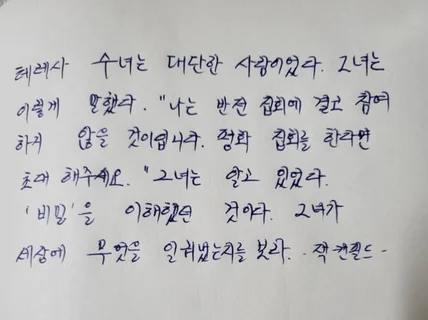 테레사 수녀는 대단한 사람이었다. 그녀는
이렇게 말했다. "나는 반전 집회에 결코 참여
하지 않을 것이입니다. 평화 집회를 한다면
초대 해주세요." 그녀는 알고 있었다.
'비밀'을 이해했던 것이다. 그녀가
세상에 무엇을 일궈냈는지를 보라. - 잭 캔필드 -